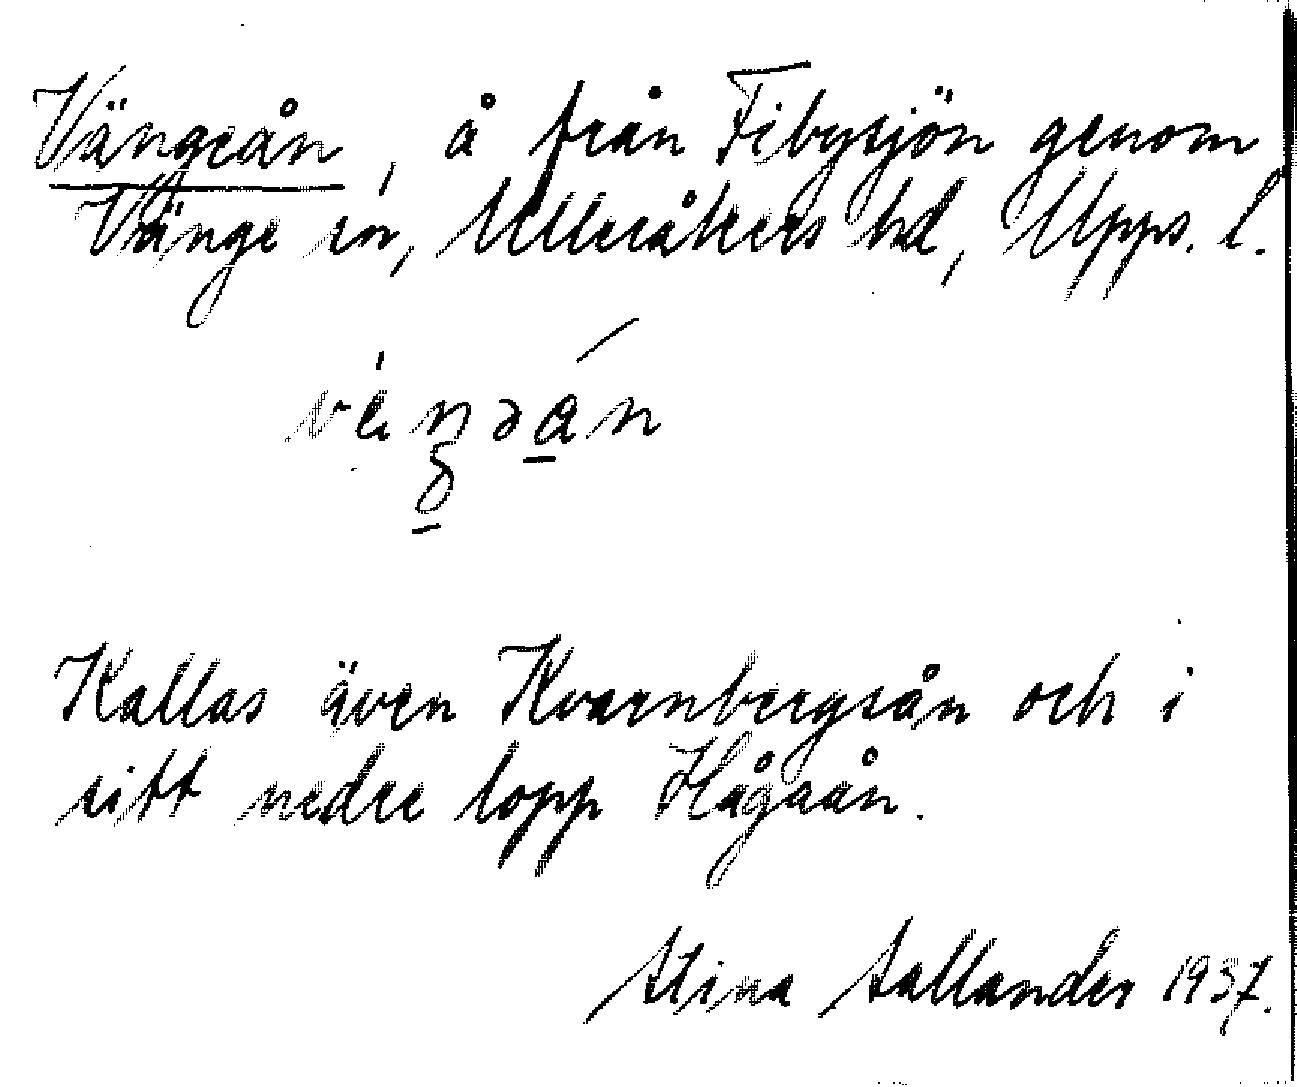 Vängeån, å från Fibysjön genom
Vänge sn, Ulleråkers hd, Upps. l.
Kallas även Kvarnbergsån och i
sitt nedre lopp Hågaån.
Stina Sallander 1937.